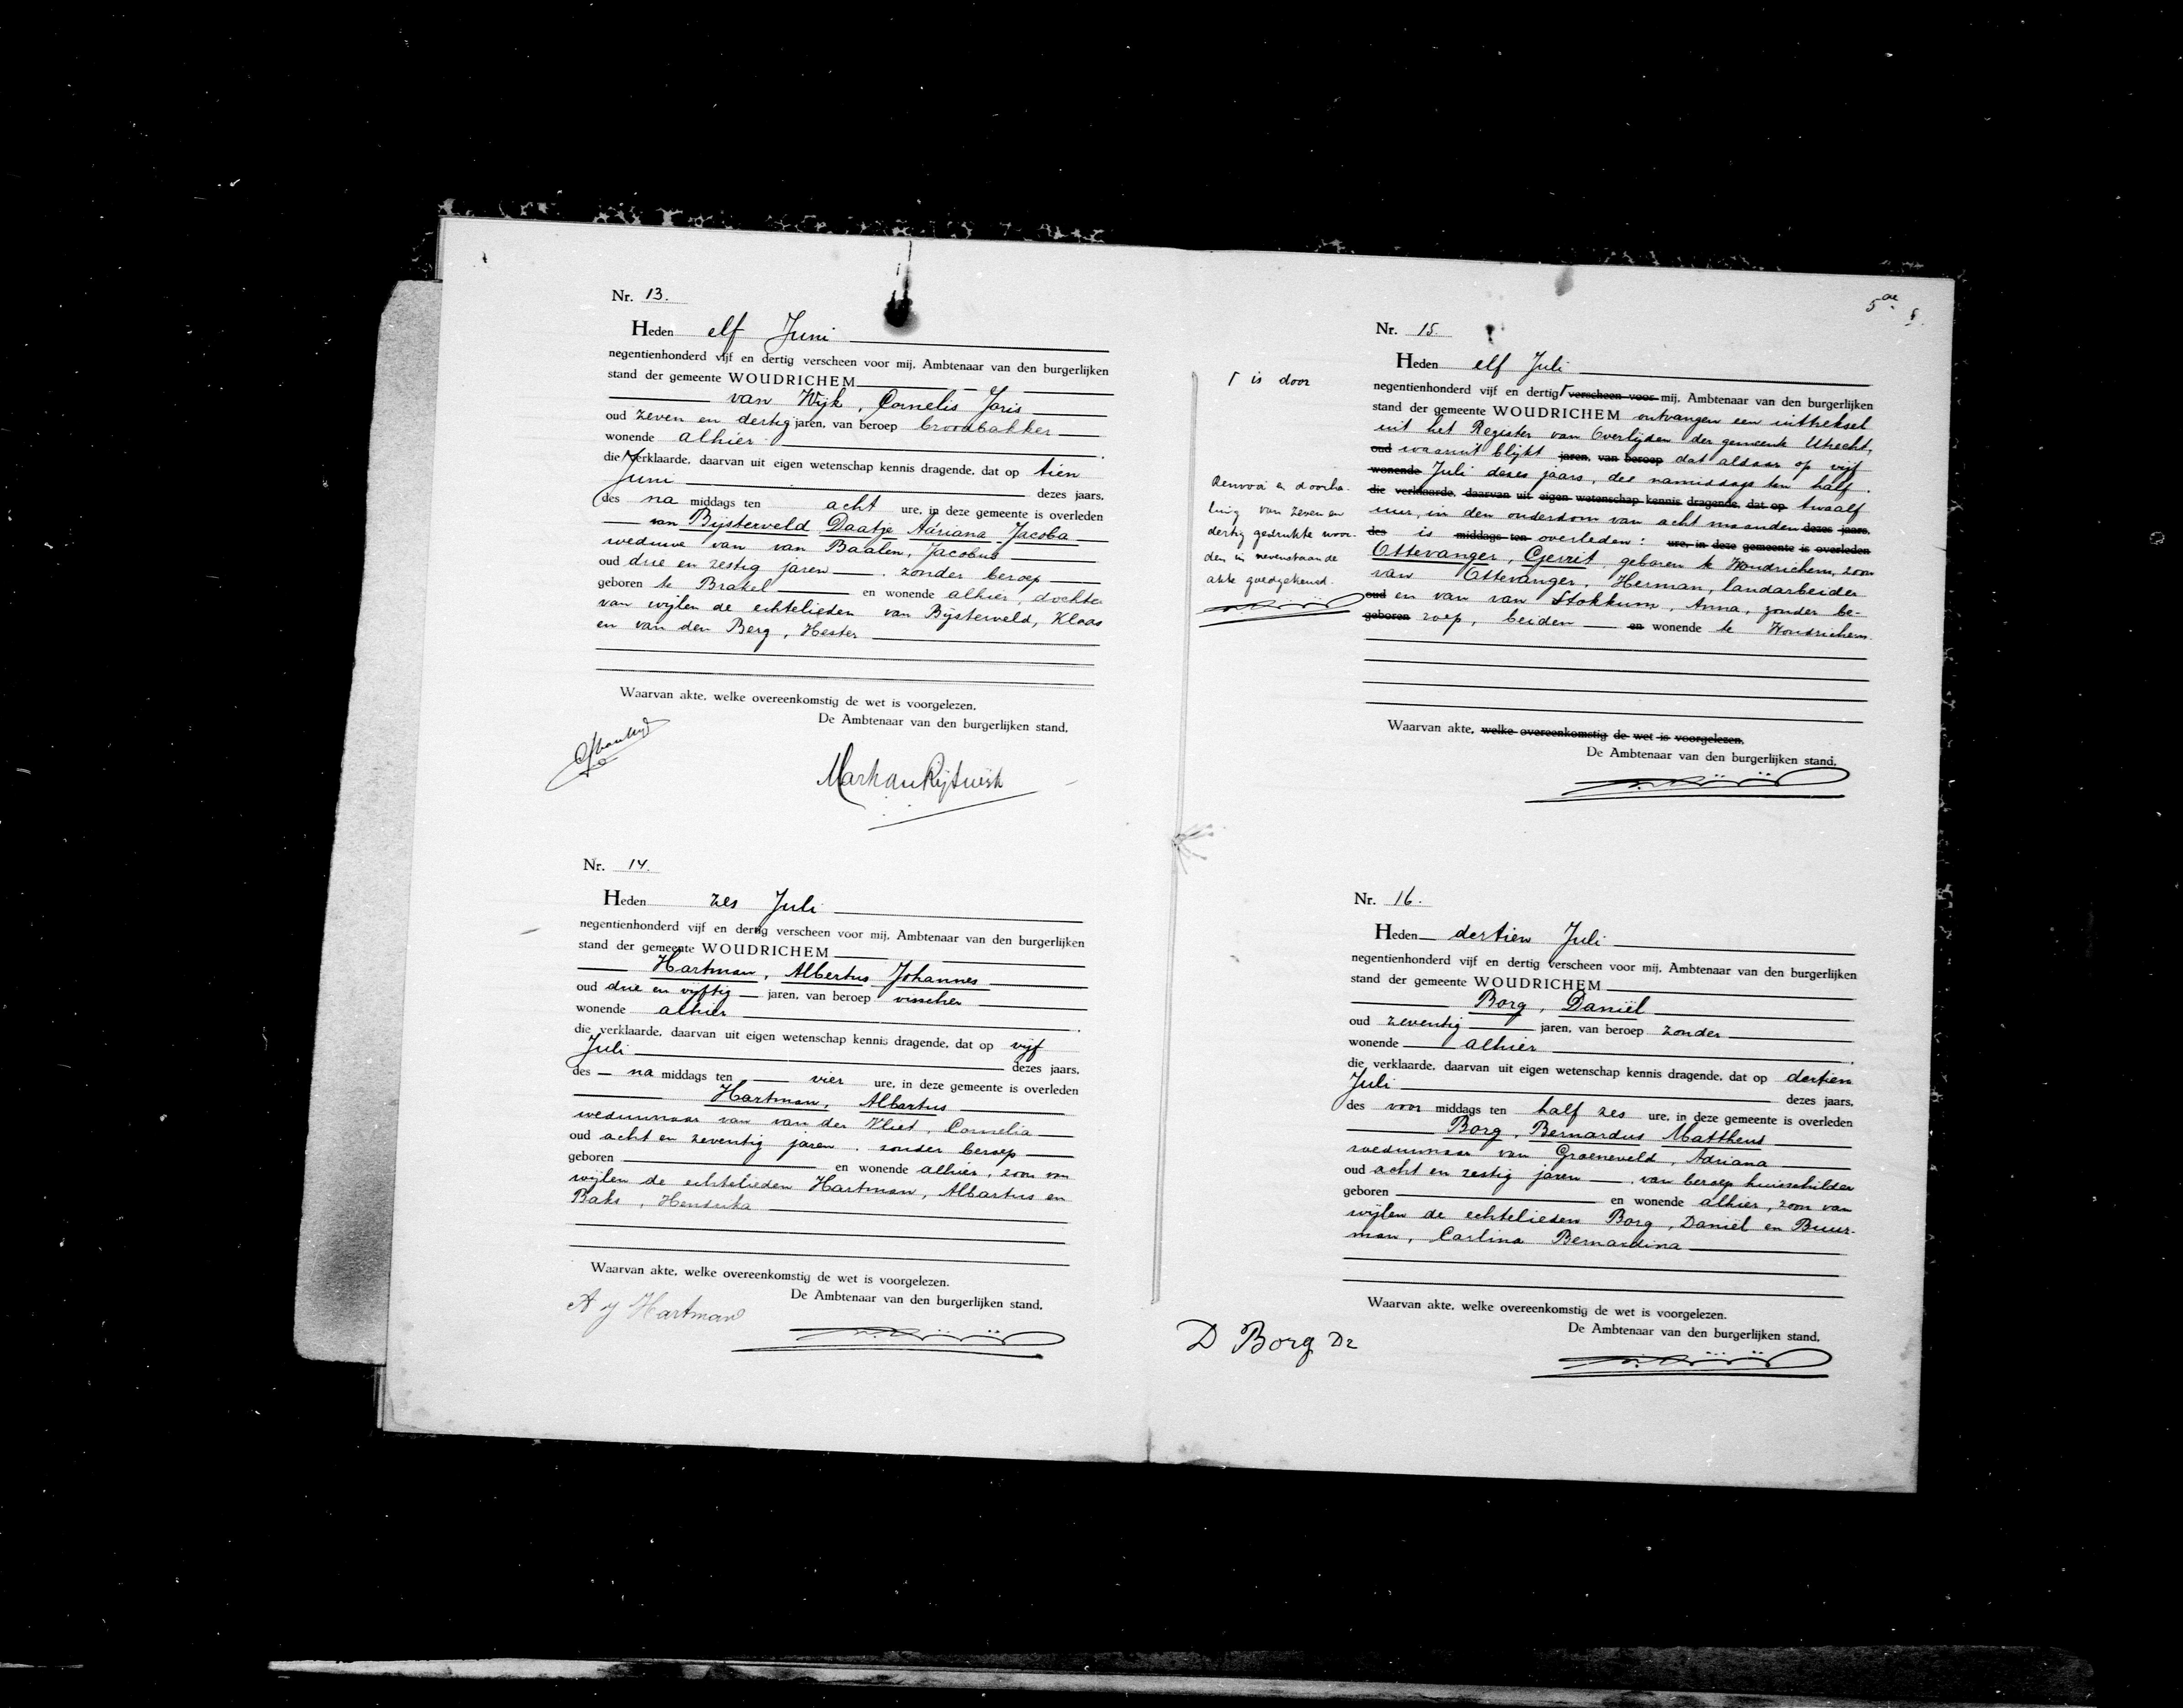 Nr. 13.
Heden elf Juni
negentienhonderd vijf en dertig verscheen voor mij, Ambtenaar van den burgerlijken
stand der gemeente WOUDRICHEM
van Wijk, Cornelis Joris
oud zeven en dertig jaren, van beroep broodbakker
wonende alhier
die verklaarde, daarvan uit eigen wetenschap kennis dragende, dat op tien
Juni dezes jaars,
des na middags ten acht ure, in deze gemeente is overleden
van Bijsterveld Daatje Adriana Jacoba
weduwe van van Baalen, Jacobus
oud drie en zestig jaren, zonder beroep
geboren te Brakel en wonende alhier, dochter
van wijlen de echtelieden van Bijsterveld, Klaas
en van den Berg, Hester
Waarvan akte, welke overeenkomstig de wet is voorgelezen.
De Ambtenaar van den burgerlijken stand,
Nr. 14.
Heden zes Juli
negentienhonderd vijf en dertig verscheen voor mij, Ambtenaar van den burgerlijken
stand der gemeente WOUDRICHEM
Hartman, Albertus Johannes
oud drie en vijftig jaren, van beroep visscher
wonende alhier
die verklaarde, daarvan uit eigen wetenschap kennis dragende, dat op vijf
Juli dezes jaars,
des na middags ten vier ure, in deze gemeente is overleden
Hartman, Albartus
weduwnaar van van der Vliet, Cornelia
oud acht en zeventig jaren, zonder beroep
geboren en wonende alhier, zoon van
wijlen de echtelieden Hartman, Albartus en
Baks, Hendrika
Waarvan akte, welke overeenkomstig de wet is voorgelezen.
De Ambtenaar van den burgerlijken stand,
A J Hartman
5de
Nr. 15.
Heden elf Juli
negentienhonderd vijf en dertig ┌ verscheen voor mij, Ambtenaar van den burgerlijken
stand der gemeente WOUDRICHEM ontvangen een uittreksel
uit het Register van Overlijden der gemeente Utrecht,
oud waaruit blijkt jaren, van beroep dat aldaar op vijf
wonende Juli dezes jaars, des namiddags ten half
die verklaarde, daarvan uit eigen wetenschap kennis dragende, dat op twaalf
uur, in den ouderdom van acht maanden dezes jaars,
des is middags ten overleden: ure, in deze gemeente is overleden
Ottevanger, Gerrit, geboren te Woudrichem, zoon
van Ottevanger, Herman, landarbeider
oud en van van Stokkum, Anna, zonder be-
geboren roep, beiden en wonende te Woudrichem.
Waarvan akte, welke overeenkomstig de wet is voorgelezen.
De Ambtenaar van den burgerlijken stand,
┌ is door
Renvooi en doorha-
ling van zeven en
dertig gedrukte woor-
den in nevenstaande
akte goedgekeurd.
Nr. 16.
Heden dertien Juli
negentienhonderd vijf en dertig verscheen voor mij, Ambtenaar van den burgerlijken
stand der gemeente WOUDRICHEM
Borg, Daniël
oud zeventig jaren, van beroep zonder
wonende alhier
die verklaarde, daarvan uit eigen wetenschap kennis dragende, dat op dertien
Juli dezes jaars,
des voor middags ten half zes ure, in deze gemeente is overleden
Borg, Bernardus Mattheus
weduwnaar van Groeneveld, Adriana
oud acht en zestig jaren, van beroep huisschilder
geboren en wonende alhier, zoon van
wijlen de echtelieden Borg, Daniël en Buur-
man, Carlina Bernardina
Waarvan akte, welke overeenkomstig de wet is voorgelezen.
De Ambtenaar van den burgerlijken stand,
D Borg Dz